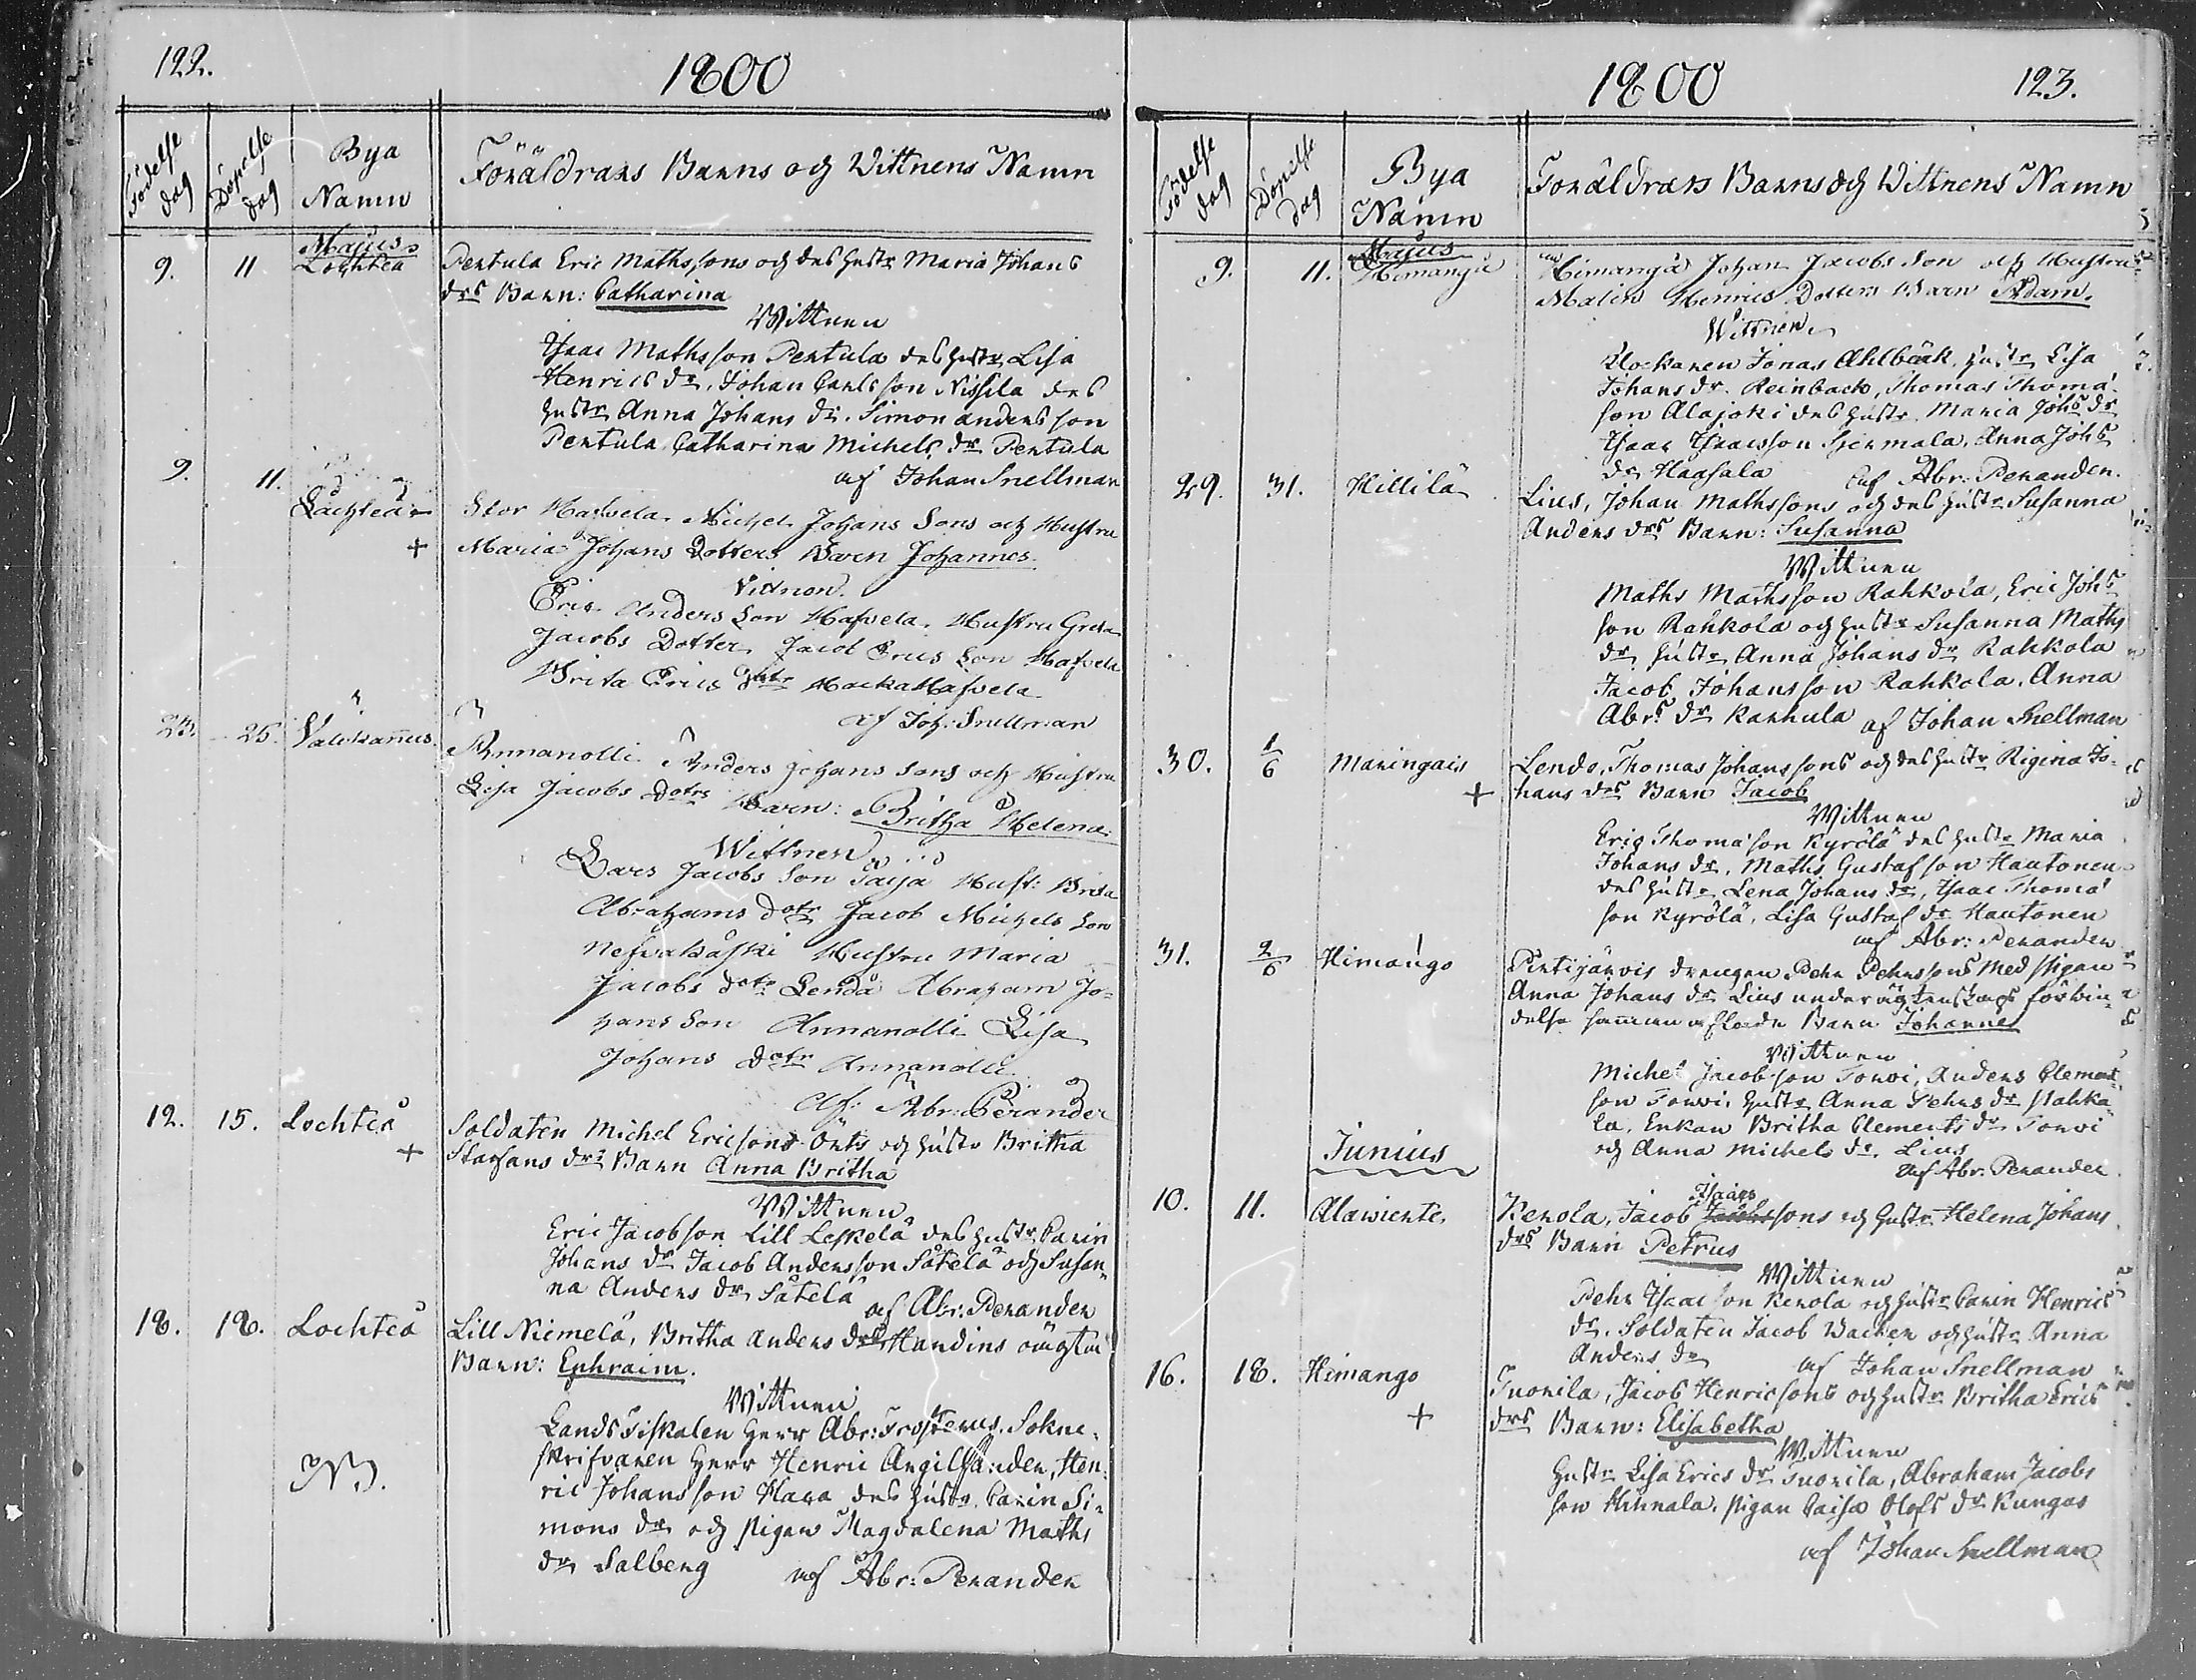 122.
1800
Födelse dag
Döpelse dag
Bya Namn
Föräldrars Barns och Wittnens Namn
Majus
9. 11 Lochteå Pertula Eric Mathssons och des hustr Maria Johans
drs Barn: Catharina
Wittnen
Isaac Mathsson Pertula des hustr Lisa
Henrics dr. Johan Carlsson Nissila des
hustr Anna Johans dr. Simon anders son
Pertula Catharina Michels dr Pertula
af Johan Snellman
9. 11.
Lachteå Stor Hafvela Michel Johans Sons och Hustru
+ Maria Johans Dotters Barn Johannes.
Vittnen.
Eric Anders Son Hafvela. Hustru Greta
Jacobs Dotter Jacob Erics Son Hafvela
Brita Erics dotr Hafvela
af Joh: Snellman
25. 26. Walikannus. Annanolli Anders Johans Sons och Hustru
Lisa Jacobs dotrs Barn: Britha Helena
Wittnen
Lars Jacobs Son Päijä Hust: Brita
Abrahams dotr Jacob Michels Son
Nefvakåski Hustru Maria
Jacobs dotr Lendå Abraham Jo-
hans Son Annanolli Lisa
Johans dotr Annanolli
Af: Abr: Perander
12. 15. Lochteå Soldaten Michel Ericsons Örts och hustr Britha
+ Staffans drs Barn Anna Britha
Wittnen
Eric Jacobson Lill Leskelä des hustr Carin
Johans dr Jacob Andersson Såtelä och Susan-
na Anders dr Såtelä
af Abr: Perander
18. 18. Lochteå Lill Niemelä, Britha Anders drs Handins oägta
Barn: Ephraim.
Wittnen
LandsFiskalen Herr Abr: Frosterus. Sokne-
skrifvaren Herr Henric Angillander, Hen-
ric Johansson Hara des hustr. Carin Si-
mons dr och pigan Magdalena Maths
dr Salberg af Abr: Perander
1800
123.
Födelse dag
Döpelse dag
Bya Namn
Föräldrars Barns och Wittnens Namn
Majus
9. 11. Himangå Himangå Johan Jacobs Son och Hustru
Malins Henrics Dotters Barn Adam.
Wittnen
Klockaren Jonas Ahlbäck, hustr Lisa
Johans dr. Reinback, Thomas Thoma-
son Alajoki des hustr. Maria Johs dr
Isaac Isaacsson Hermala, Anna Johs
dr Haasala af Abr: Perander.
29. 31. Hillilä Lius, Johan Mathssons och des hustr Susanna
Anders drs Barn: Susanna
Wittnen
Maths Mathsson Rahkola, Eric Johs
son Rahkola och hustr Susanna Maths
dr, hustr Anna Johans dr Rahkola
Jacob Johansson Rahkola. Anna
Abrs dr Karhula af Johan Snellman
30. 1/6 Maringais Lendo, Thomas Johanssons och des hustr Rigina Jo-
+ hans drs Barn Jacob
Wittnen
Eric Thomason Kyrölä des hustr Maria
Johans dr, Maths Gustafson Hautonen
des hustr Lena Johans dr, Isaac Thoma-
son Kyrölä, Lisa Gustaf dr Hautonen
af Abr: Perander
31. 2/6 Himango Pertijärvis drengen Pehr Pehrssons med pigan
Anna Johans dr Lius under ägtenskaps förbin-
delse samman aflade Barn Johannes
Wittnen
Michel Jacobson Torvi, Anders Clemet-
son Torvi, hustr Anna Pehrs dr Hahka-
la, Enkan Britha Clemets dr Torvi
och Anna Michels dr. Lius
af Abr: Perander
Junius
10. 11. Alawierte Kerola, Jacob Isaacs sons och hustr Helena Johans
drs Barn Petrus
Wittnen
Pehr Isaacson Kerola och hustr Carin Henrics
dr. Soldaten Jacob Wacker och hustr Anna
Anders dr af Johan Snellman
16. 18. Himango Tuorila, Jacob Henricsons och hustr Britha Erics
+ drs Barn: Elisabetha
Wittnen
Hustr Lisa Erics dr Tuorila, Abraham Jacobs
son Hinnala, pigan Caisa Olofs dr Kungas
af Johan Snellman